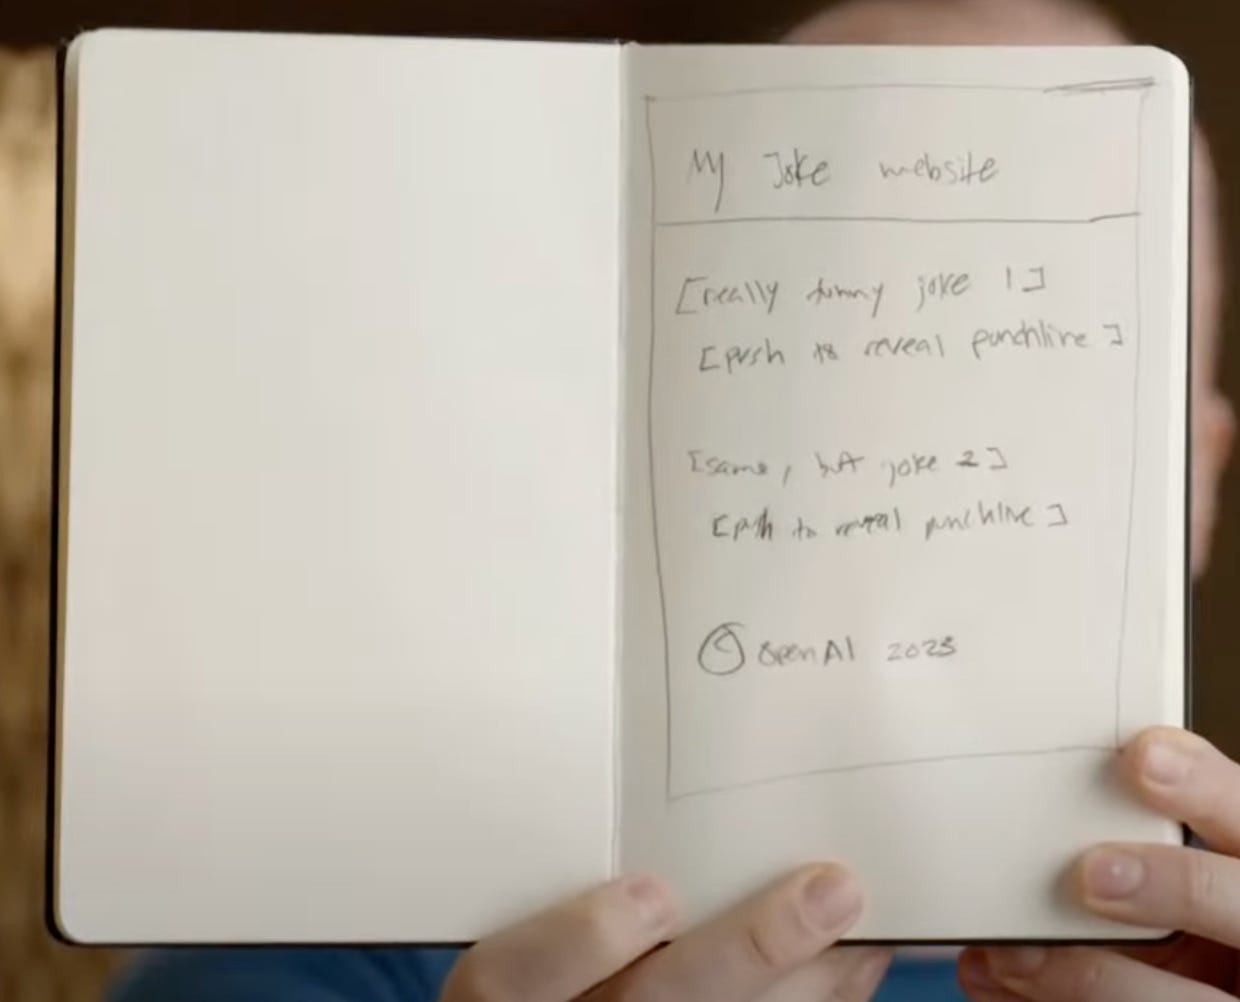 My Joke website
[really funny joke 1]
[push to reveal punchline]
[same, but joke 2]
[push to reveal punchline]
© OpenAI 2023